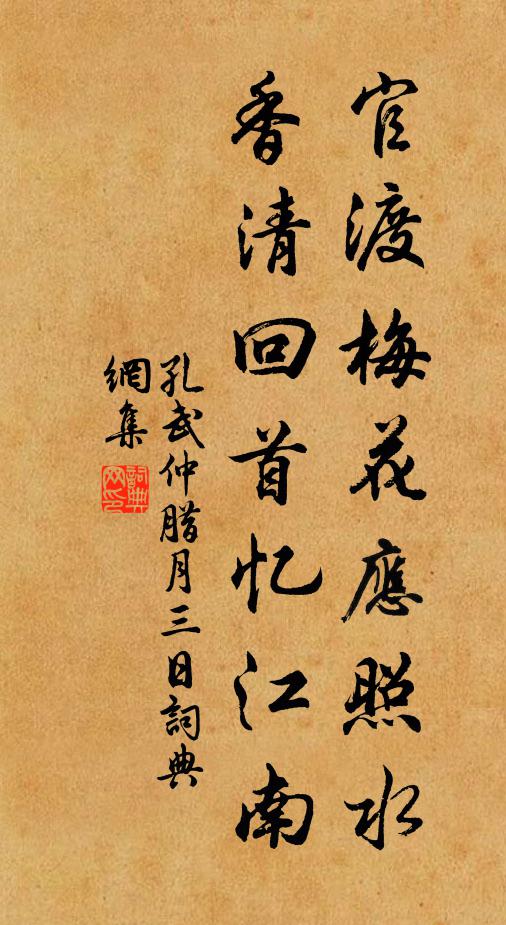 官渡梅花應照水
香清回首忆江南
孔武仲腊月三日詞典
網集
詞典
网印